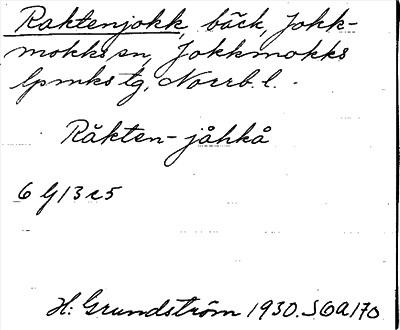 Raktenjokk, bäck, Jokk-
mokks sn, Jokkmokks
lpmks tg, Norrb. l.
Råkten-jåhkå
6 G 13 c 5
H. Grundström 1930. S 6a 170